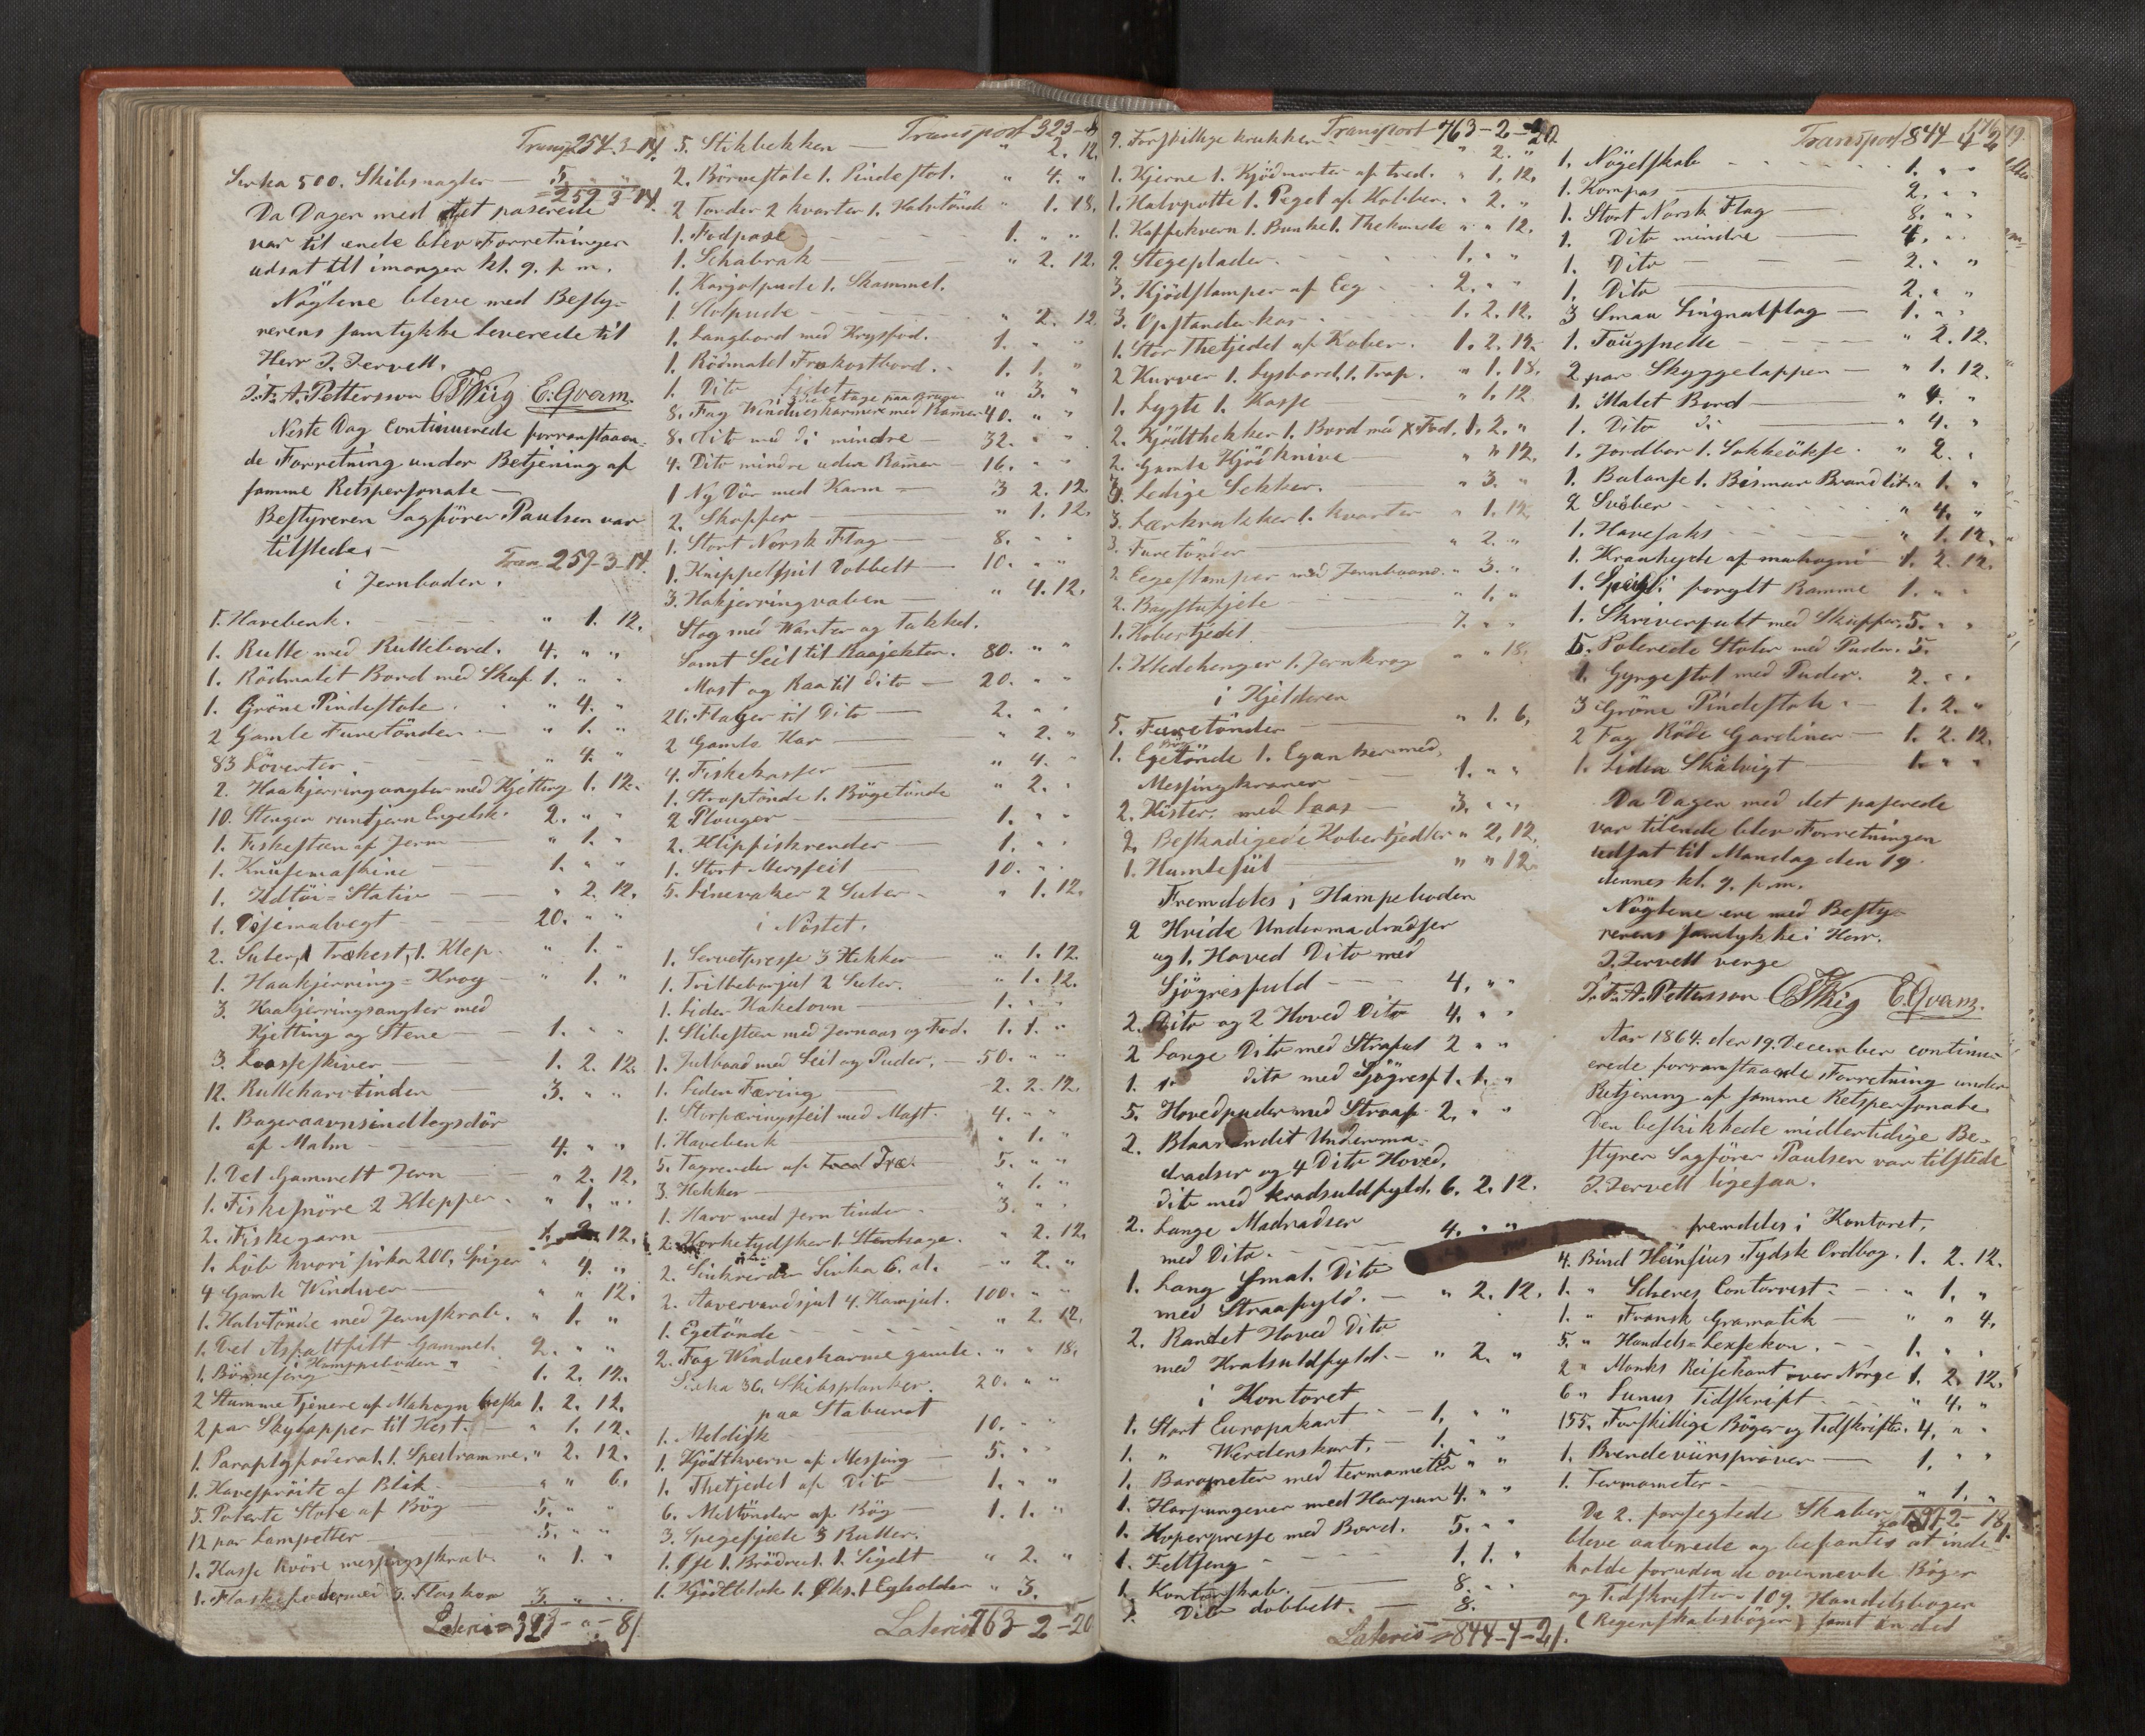 Transp. 254-3-14.
Sirka 500. Skibsnagler — 5. " "
259-3-14.
Da Dagen med det paserede
var til ende blev Forretningen
udsat till imorgen kl. 9. f. m.
Nöglene bleve med Besty-
rerens samtykke leverede til
Herr J. Jervell.
J. F. A. Pettersson E. Qvam.
Neste Dag Continuerede forranstaaen-
de Forretning under Betjening af
samme Retspersonale —
Bestyreren Sagförer Paulsen var
tilstede. —
Tran. 259-3-14.
i Jernboden.
1. Havebenk. " 1. 12.
1. Rulle med Rullebord. 4. " "
1. Rödmalet Bord med Skuf 1. " "
1. Gröne Pindestole. " 4. "
2 Gamle Furetönder — " 1. "
83 Löverter. " 4. "
2. Haakjerringangler med Kjetting 1. 12.
10. Stenger runtjern Engelsk. 2. " "
1. Fiskesteen af Jern — " 1. "
1. Knusemaskine 1. " "
1. Ildtöi-Stativ — " 2. 12.
1. Disemalvegt — 20. " "
2. Suter, 1 Trækest, 1. Klep. " 1. "
1. Haakjerring-Krog — " 1. "
3. Haakjerringsangler med
Kjetting og Stene — 1. " "
3. Laasseskiver — 1. 2. 12.
12. Rulleharvtinder — 3. " "
1. Bageraavnsindlagsdör
af Malm — 4. " "
1. Del Gammelt Jern — " 2. 12.
1. Fiskesnöre 2 Klepper. " 1. "
2. Fiskegarn — 12.
1. Löb hvori sirka 200. Spiger " 4. "
4 Gamle Windver — " " 12.
1. Halvtönde med Jernskrab. " 1. "
1. Del Asfaltfilt Gammel. 2. " "
Hamppeboden
1. Börneseng 1. 2. 12.
2 Stumme Tjenere af Mahogn 1. 2. 12.
2 par Skylapper til Hest. " 1. 12.
1. Paraplyfoderal. 1. Speilramme. " 2. 12.
1. Havesproite af Blik — " " 6.
5. Polerte Stole af Bög — 5. " "
12 par Lampetter — 5. " "
1. Kasse hvöri messingsskrab. " 1. "
1. Flaskefoder med 5. Flasker 3. " "
Lateris = 323-"-8/
Transport 323-"-8
5. Stikbekken — " 2. 12.
2. Börnestole 1. Pindestol. " 4. "
2 Tönder 2 kvarter 1. Halvtönde " 1. 18.
1. Fodpose — 1. " "
1. Schabrak — " 2. 12.
1. Karjolpude 1. Skammel.
1. Stolpude — " 2. 12
1. Langbord med Krysfod. 1. " "
1. Rödmalet Frokostbord. 1. 1. "
1. Dito Lidet " 3. "
8. Fag Windueskarmer med Ramer 40. " "
8. dito med di mindre — 32. " "
4. Dito mindre uden Ramer — 16. " "
1 Ny Dör med Karm — 3 2. 12
2. Skapper — " 1. 12.
1. Stort Norsk Flag — 8. " "
1. Knippelspil Dobbelt — 10. " "
3. Hakjerringvaben — " 4. 12.
Stag med Wanter og Takkel.
Samt Seil til Raajekten. 80. " "
Mast og Raa til dito — 20. " "
20. Flager til Dito — 2. " "
2 Gamle Kar — " 2. "
4. Fiskekasser — " 4. "
1. Straptönde 1. Bögetönde " 2. "
2 Plouger — 1. " "
2. Klipfiskrender — 1. " "
1. Stort Mersseil — 10. " "
5. Linevaker 2 Suter — " 1. 12.
i Nöstet.
1. Servetpresse 3 Hekker — " 1. 12.
1. Trillebörjul 2 Suter. " 1. 12.
1. Liden Kakelovn — 1. " "
1. Slibesteen med Jernaas og Fod. 1. 1. "
1. Julbaad med Seil og Puder. — 50. " "
1. Liden Færing — 2. 2. 12.
1. Storfæringsseil med Mast. 4. " "
1. Havebenk — " 1. "
5. Tagrender af Træ — 5. " "
3. Hekker — " 1. "
1. Harv med Jern tinder. 3. " "
2. Korketydsker 1. Stentrage. " 2. 12.
2. Sinkrender Sirka 6. al. " 2. "
2. Aavervandsjul 4. Kamjul. 100. " "
1. Egetönde — " 2. 12.
2. Fag Windueskarme gamle. " " 18.
Sirka 36. Skibsplanker. 20. " "
paa Staburet
1. Meldisk — 10. " "
1. Kjödtkvern af Messing — 5. " "
1. Thekjedel af Dito — 1. " "
6. Meltönder af Bög — 1. 1. "
3. Spegefjæle 3 Butter.
1. Öse 1. Brödrul. 1. Sigdt " 2. "
1. Kjödtblok 1. Öks. 1 Egholder " 3. "
Lateris 763-2-20
Transport 763-2-20
9. Forskillige krukker " 2. "
1. Kjerne 1. Kjödmorter af tred. " 1. 12.
1. Halvpotte 1. Pegel af Kobber. " 2. "
1. Kaffekvern 1. Bunke 1. Thekande " " 12.
2. Stegeplader. — 1. " "
3. Kjödstamper af Eeg — 2. " "
3. Opstander kar — 1. 2. 12.
1. Stor Thekjedel af Kober. 1. 2. 12.
2 Kurver 1. Lysbord. 1. Trap. " 1. 18.
1. Lygte 1. Kasse " 1. 12
2. Kjödthekker 1. Bord md X Fod. 1. 2. "
2. Gamle Kjödknive " " 12.
6. Ledige Sekker. — " 3. "
3. Lærkrukker 1. kvarter " 1. 12.
3. Furetönder — " 2. "
2. Eegestamper med Jernbaand. " 3. "
2. Bagstufjele " 1. "
1. Kobertjedel — 7. " "
1. Kledehenger 1. Jernkrog " " 18.
i Kjelderen
5. Furetönder — " 1. 6.
1. Egetönde 1. Eganker med
Messingkraner — 1. " "
2. Kister. med Laas — 3. " "
2. Beskadigede Kobertjedler " 2. 12.
1. Humlesül " " 12.
Fremdeles i Hampeboden
2 Hvide Undermadradser
og 1. Hoved Dito med
Sjögresfuld — 4. " "
2. Dito og 2 Hoved Dito 4. " "
2 Lange Dito med Straful 2 " "
1. dito med Sjögresf 1. 1. "
5. Hovedpuder med Straaf. 2. " "
2. Blaarandet Underma-
dradser og 4 Dito Hoved.
dito med kradsuldfyld. 6. 2. 12.
2. Lange Madradser
med Dito. — 4. " "
1. Lang Smal. Dito
med Straafyld. — " 2. 12.
2. Randet Hoved Dito
med Kratsuldfyld. — " 2. "
i Kontoret
1. Stort Europakart — 1. " "
1. " Werdenskart. — 1. " "
1. Barometer med termometer " "
1. Harpungever med Harpun 4. " "
1. Kopierpresse med Bord. 5. " "
1. Feltseng — 1. 1. "
1. Kontorskab. — 8. " "
1. Dito dobbelt. — 8. " "
Lateris = 844-4-2/.
Transport 844-4-2
1. Nögelskab — 1. " "
1. Kompas — 2. " "
1. Stort Norsk Flag — 8. " "
1. Dito mindre — 4. " "
1. Dito — 2. " "
1. Dito — 2. " "
3 Smaa Singnalflag — 1. " "
1. Fougsnelle — " 2. 12.
2 par Skyggelapper — " 1. 12.
1. Malet Bord — " 4. "
1. Dito di — " 4. "
1. Jordbor 1. Lokkeökse. " 2. "
1. Balanse 1. Bismar Brandlit. " 1. "
2 Svöber — " 4. "
1. Havesaks — " 1. 12.
1. Kranhyde af mahogni 1. 2. 12.
1. Speil i forgylt Ramme 1. " "
1. Skriverpult med Skuffer. 5. " "
5. Polerede Stoler med Puder. 5.
1. Gyngestol med Puder. 2. " "
3 Gröne Pindestole — 1. 2. "
2 Fag Röde Gardiner — 1. 2. 12.
1. Liden Skålvigt 1. " "
Da Dagen med det paserede
var tilende blev Forretningen
udsat til Mandag den 19.
dennes kl. 9. f. m.
Nöglene ere med Besty-
rerens samtykke i Herr.
J. Jervell verge
J. F. A. Pettersson E. Qvam.
Aar 1864. den 19. December continu-
erede forranstaaende Forretning under
Betjening af samme Retspersonale.
Den beskikkede midlertidige Be-
styrer Sagförer Paulsen var tilstede
J. Jervell ligesaa.
fremdeles i Kontoret.
4. Bind Heinsius Tydsk Ordbog. 1. 2. 12.
1. " Scheres Contorrist — " 1. "
1. " Fransk Gramatik — " " 4.
5. " Handels-Lexsekon. — 1. " "
2 " Monks Reisekart over Norge 1. 2. 12.
6 " Lunus Tidskrift — " 4. "
155. Forskillige Böger og Tidskrifter. 4. " "
1. Brendevinsprøver — 1. " "
1. Termometer — " 1. "
De 2. forseglede Skaber
bleve aabnede og befantes at inde-
holde foruden de ovennevte Böger
og Tidskrifter 109. Handelsboger
(Regenskabsböger) samt en del